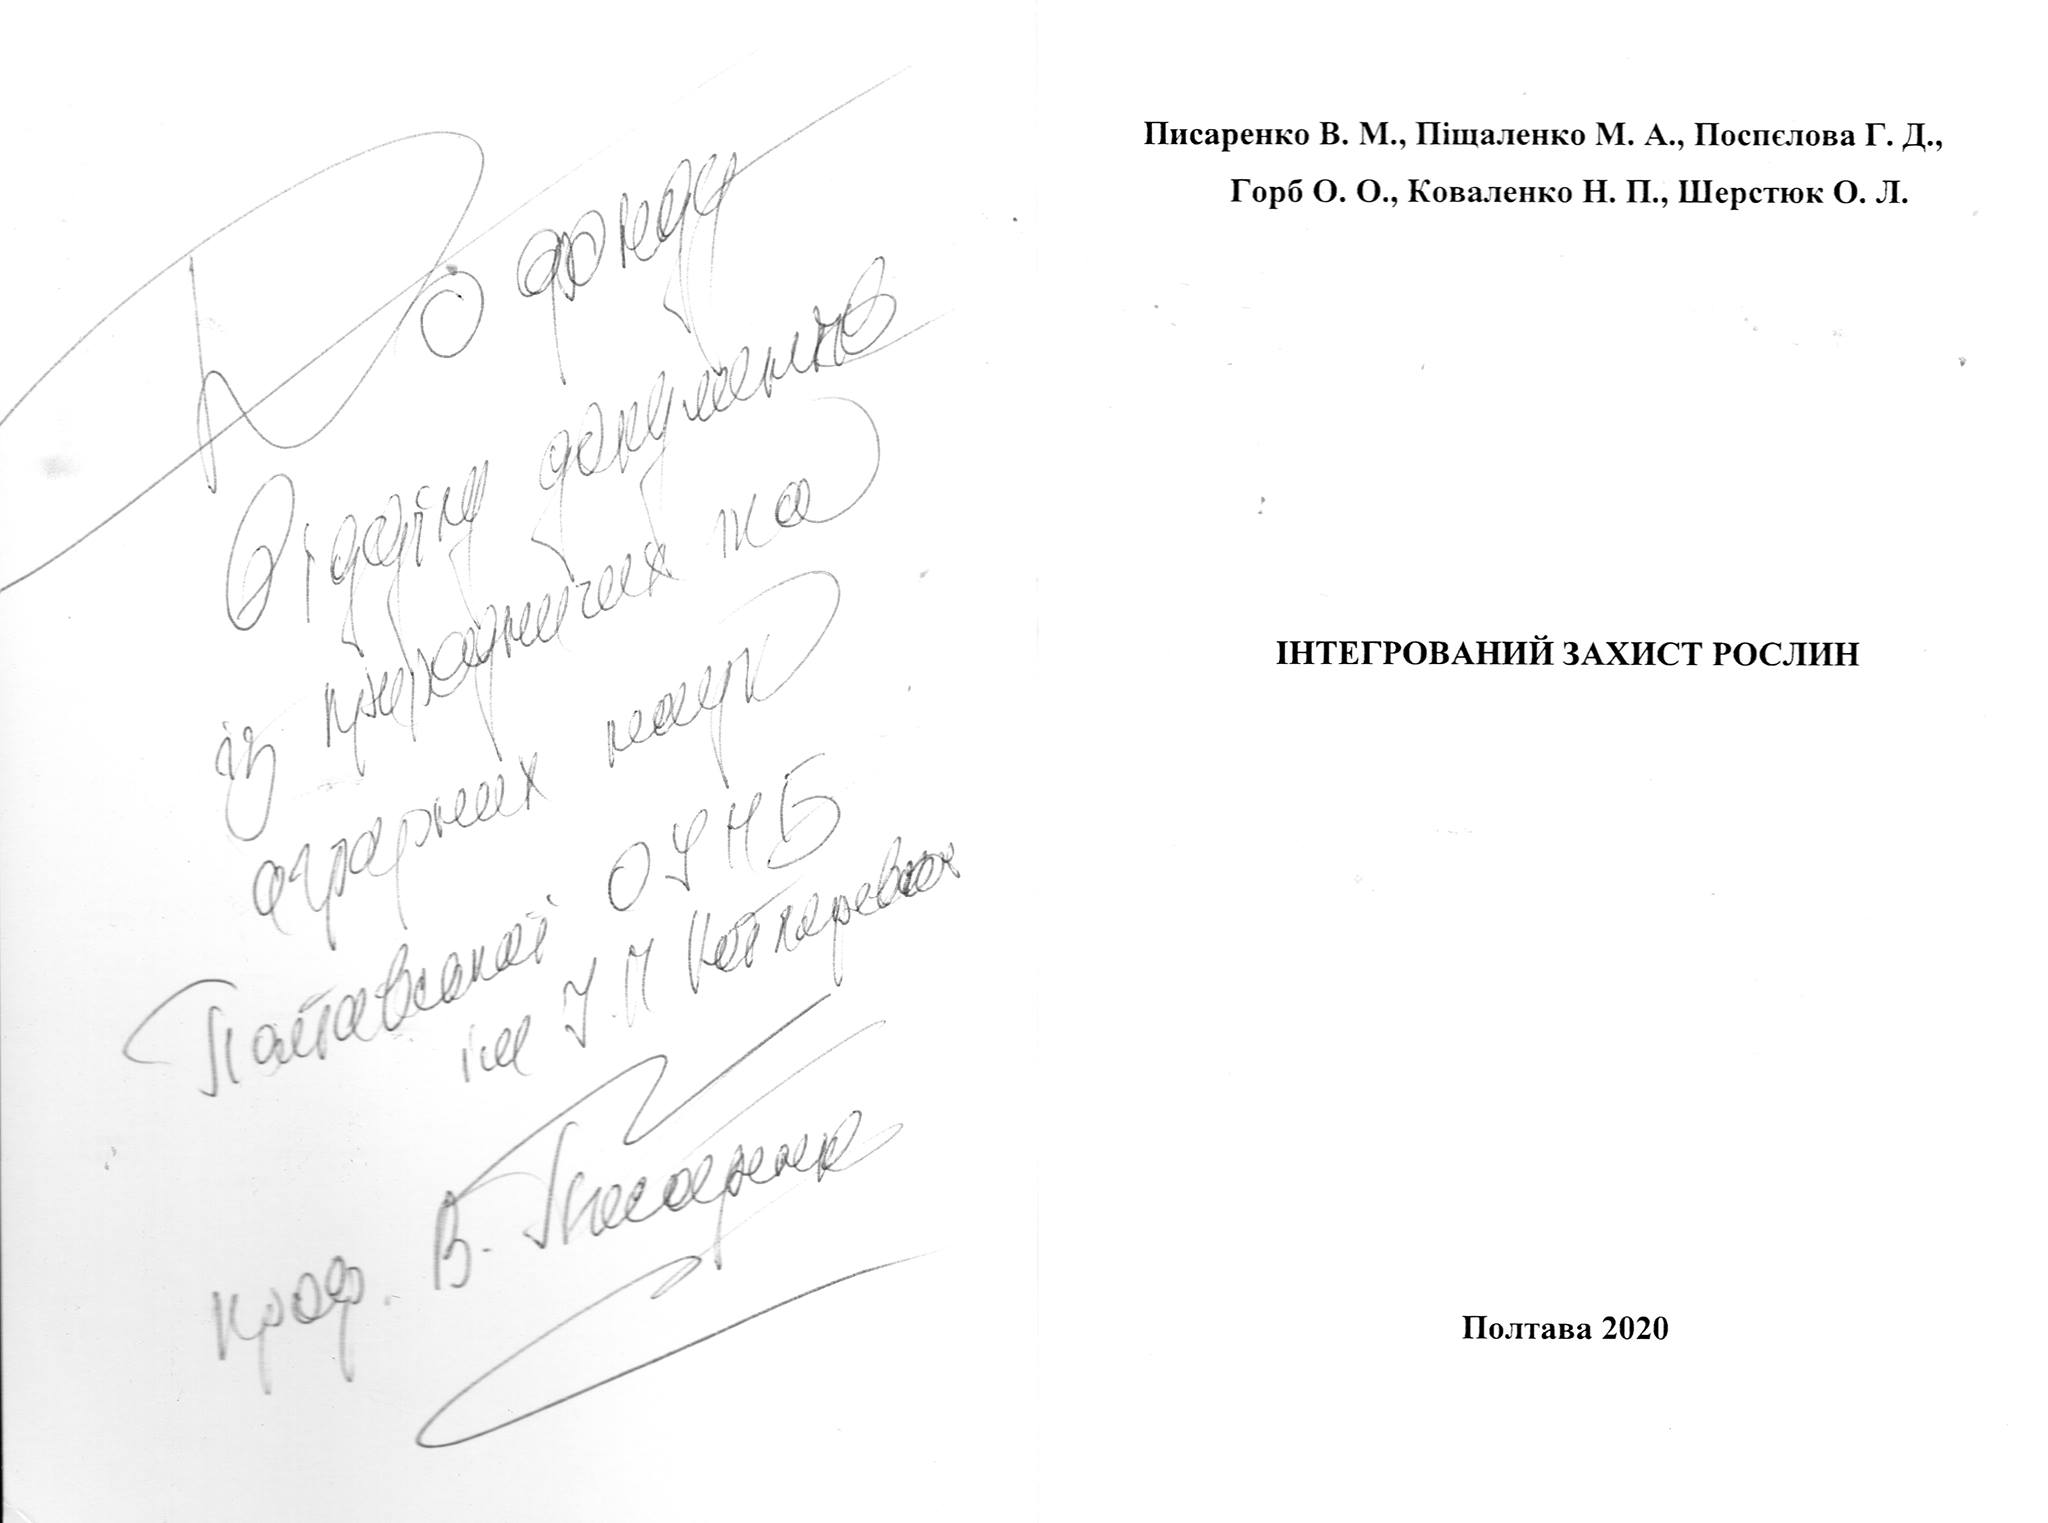 До фонду
відділу документів
із природничих та
аграрних наук
Полтавської ОУНБ
ім І.П Котляревськ
проф. В. Писаренко
Писаренко В. М., Піщаленко М. А., Поспєлова Г. Д.,
Горб О. О., Коваленко Н. П., Шерстюк О. Л.
ІНТЕГРОВАНИЙ ЗАХИСТ РОСЛИН
Полтава 2020